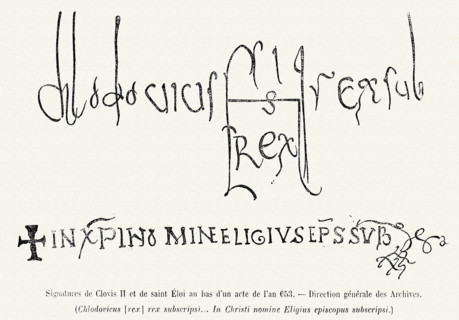 Chlodovicus rex sub
✝ IN XPI NO MINE ELIGIVS EPS SVB
Signatures de Clovis II et de saint Éloi au bas d'un acte de l'an 653. — Direction générale des Archives.
(Chlodovicus [rex] rex subscripsi... In Christi nomine Eligius episcopus subscripsi.)